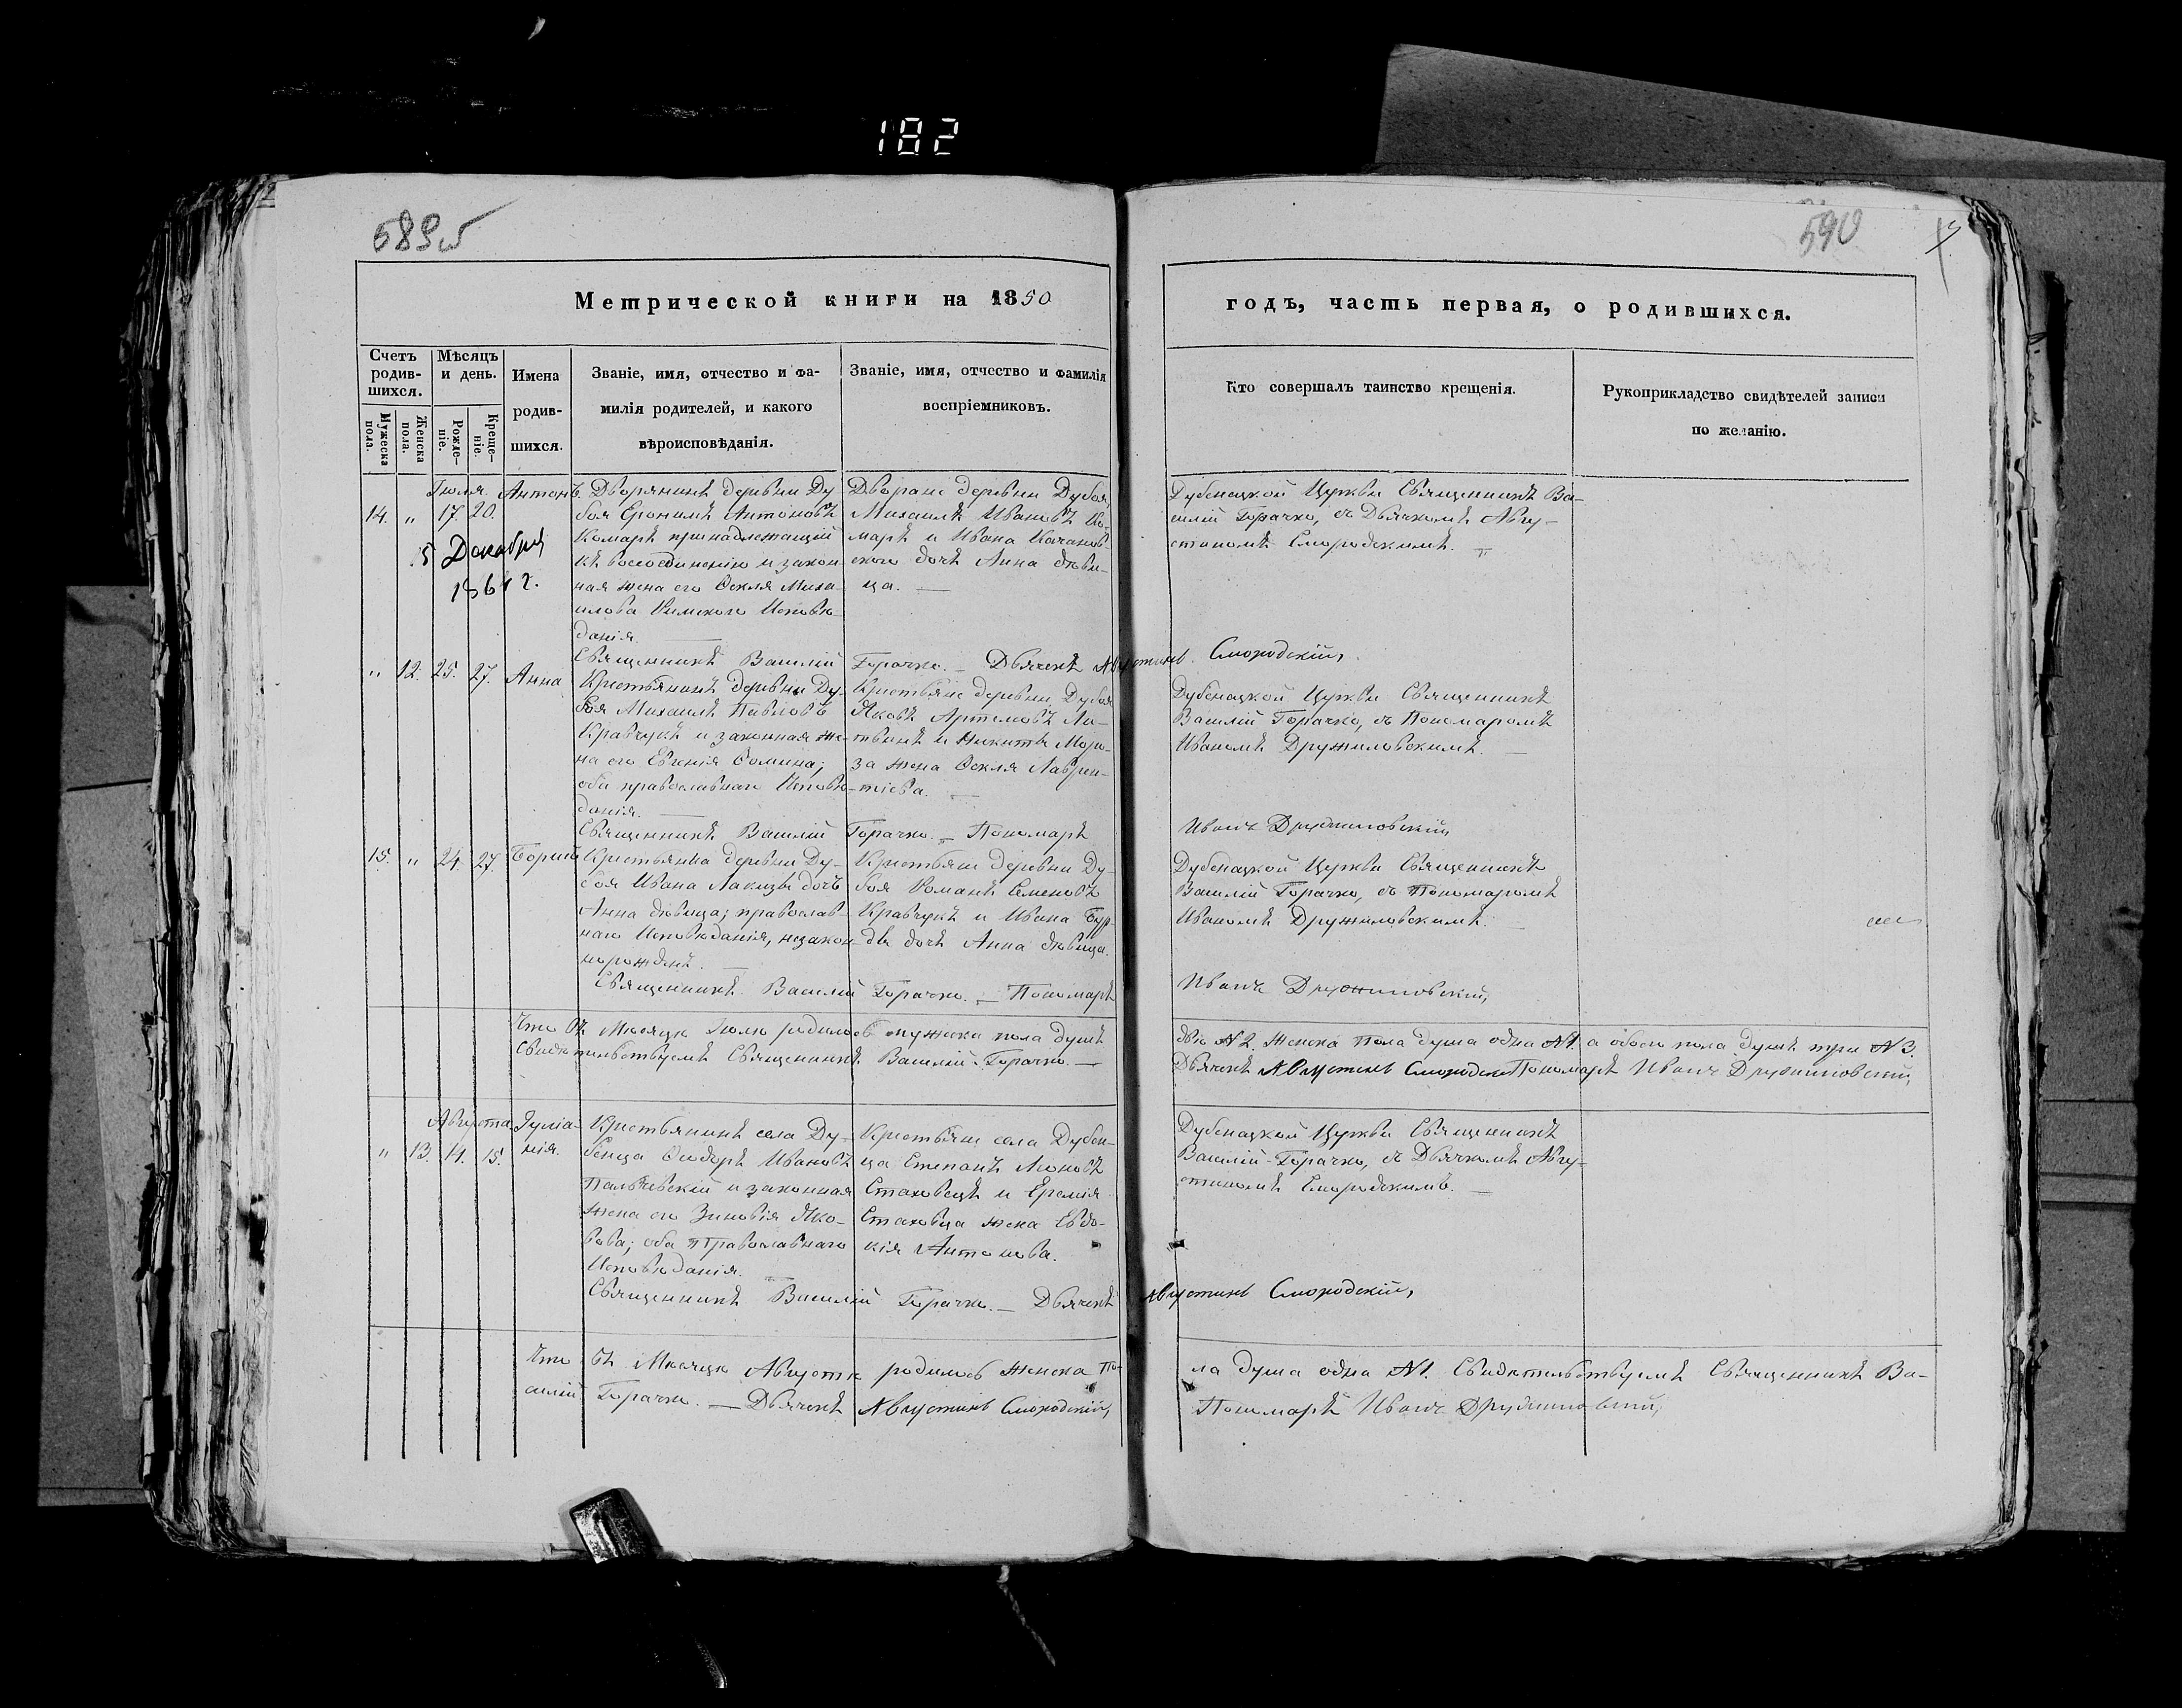 182
589об
590
Метрической книги на 1850
годъ, часть первая, о родившихся.
Счетъ родив-шихся.
Мужеска пола.
Женска пола.
Мѣсяцъ и день.
Рожде-ніе.
Креще-ніе.
Имена родив-шихся.
Званіе, имя, отчество и фа-
милія родителей, и какого
вѣроисповѣданія.
Званіе, имя, отчество и фамилія
воспріемниковъ.
Кто совершалъ таинство крещенія.
Рукоприкладство свидѣтелей записи
по желанію.
Іюля
14. " 17. 20. Антонъ
5 Декабря
1861 г.
Дворянинъ деревни Ду-
боя Еронимъ Антоновъ
Комаръ принадлежащій
къ возсоединенію и закон-
ная жена его Фекля Миха-
илова Римского Исповѣ-
данія.
Дворане деревни Дубоя,
Михаилъ Ивановъ Ко-
маръ и Ивана Качанов-
ского дочь Анна дѣви-
ца.
Дубенецкой Церкви Священникъ Ва-
силій Горачко, съ Дьячкомъ Авгу-
стиномъ Смородскимъ.
Священникъ Василій Горачко. — Дьячекъ Августинъ Смородскій,
" 12. 25. 27. Анна
Крестьянинъ деревни Ду-
боя Михаилъ Павловъ
Кравчукъ и законная же-
на его Евгенія Фомина;
оба православнаго Исповѣ-
данія.
Крестьяне деревни Дубоя
Яковъ Артемовъ Ли-
твинъ и Никиты Моро-
за жена Фекля Лаврен-
тіева.
Дубенецкой Церкви Священникъ
Василій Горачко, съ Пономаромъ
Иваномъ Дружиловскимъ.
Священникъ Василій Горачко. — Пономаръ Иванъ Дружиловскій,
15. " 24. 27. Борисъ
Крестьянка деревни Ду-
боя Ивана Лакизы дочь
Анна дѣвица; православ-
наго Исповѣданія, незакон-
норожденъ.
Крестьяне деревни Ду-
боя Романъ Семеновъ
Кравчукъ и Ивана Бур-
ды дочь Анна дѣвица.
Дубенецкой Церкви Священникъ
Василій Горачко, съ Пономаромъ
Иваномъ Дружиловскимъ.
Священникъ Василій Горачко. — Пономаръ Иванъ Дружиловскій,
Что въ Мѣсяцѣ Іюлѣ родилось мужеска пола душъ двѣ N 2. женска пола душа одна N 1. а обоего пола душъ три N 3.
Свидѣтельствуемъ Священникъ Василій Горачко. — Дьячекъ Августинъ Смородскій Пономаръ Иванъ Дружиловскій,
Августа
" 13. 14. 15. Іуліа-
нія.
Крестьянинъ села Ду-
бенца Феодоръ Ивановъ
Пальчевскій и законная
жена его Зиновія Яко-
вова; оба Православнаго
Исповѣданія.
Крестьяне села Дубен-
ца Степанъ Леоновъ
Стаховецъ и Еремія
Стаховца жена Евдо-
кія Антонова.
Дубенецкой Церкви Священникъ
Василій Горачко, съ Дьячкомъ Авгу-
стиномъ Смородскимъ.
Священникъ Василій Горачко. — Дьячекъ Августинъ Смородскій,
Что въ Мѣсяцѣ Августѣ родилось женска по-
ла душа одна N 1. Свидѣтельствуемъ Священникъ Ва-
силій Горачко. — Дьячекъ Августинъ Смородскій,
Пономаръ Иванъ Дружиловскій,